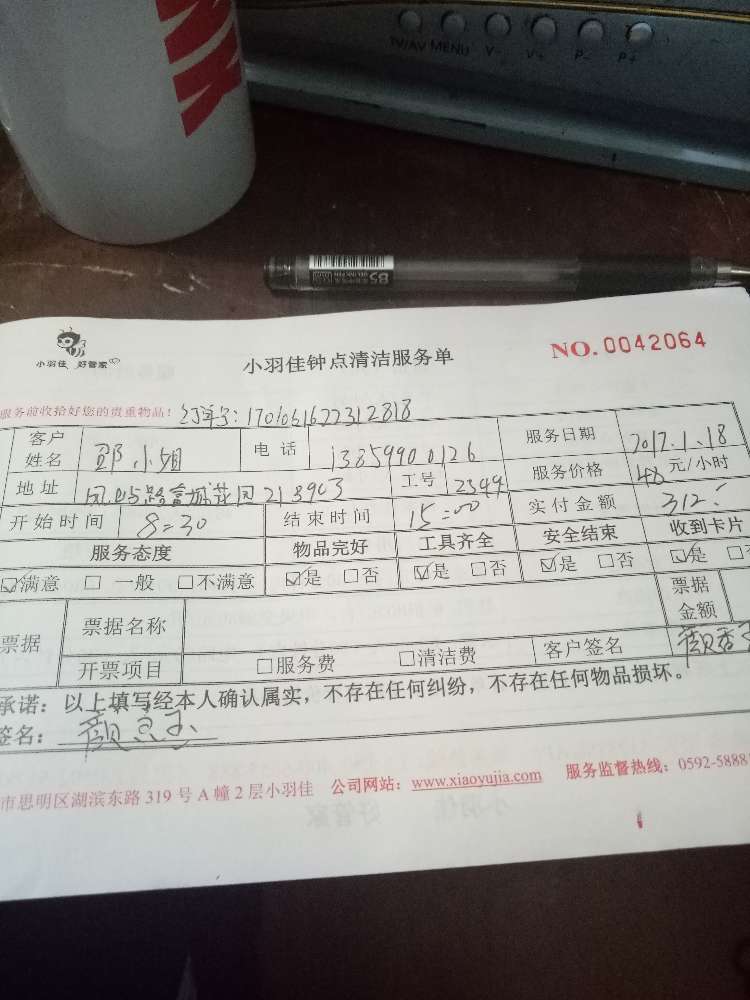 NK
TV/AV MENU V- V+ P- P+
B5
小羽佳 好管家
小羽佳钟点清洁服务单
NO.0042064
服务前收拾好您的贵重物品!
订单号:1701061622312818
客户姓名 邹小姐 电话 13859900126 服务日期 2017.1.18
地址 凤屿路富城花园213903 工号 12344 服务价格 48元/小时
开始时间 8:30 结束时间 15:00 实付金额 312
服务态度 物品完好 工具齐全 安全结束 收到卡片
☑满意 □一般 □不满意 ☑是 □否 ☑是 □否 ☑是 □否 ☑是 □
票据 票据名称 票据金额
开票项目 □服务费 □清洁费 客户签名
承诺:以上填写经本人确认属实,不存在任何纠纷,不存在任何物品损坏。
签名:
市思明区湖滨东路319号A幢2层小羽佳 公司网站:www.xiaoyujia.com 服务监督热线:0592-5888